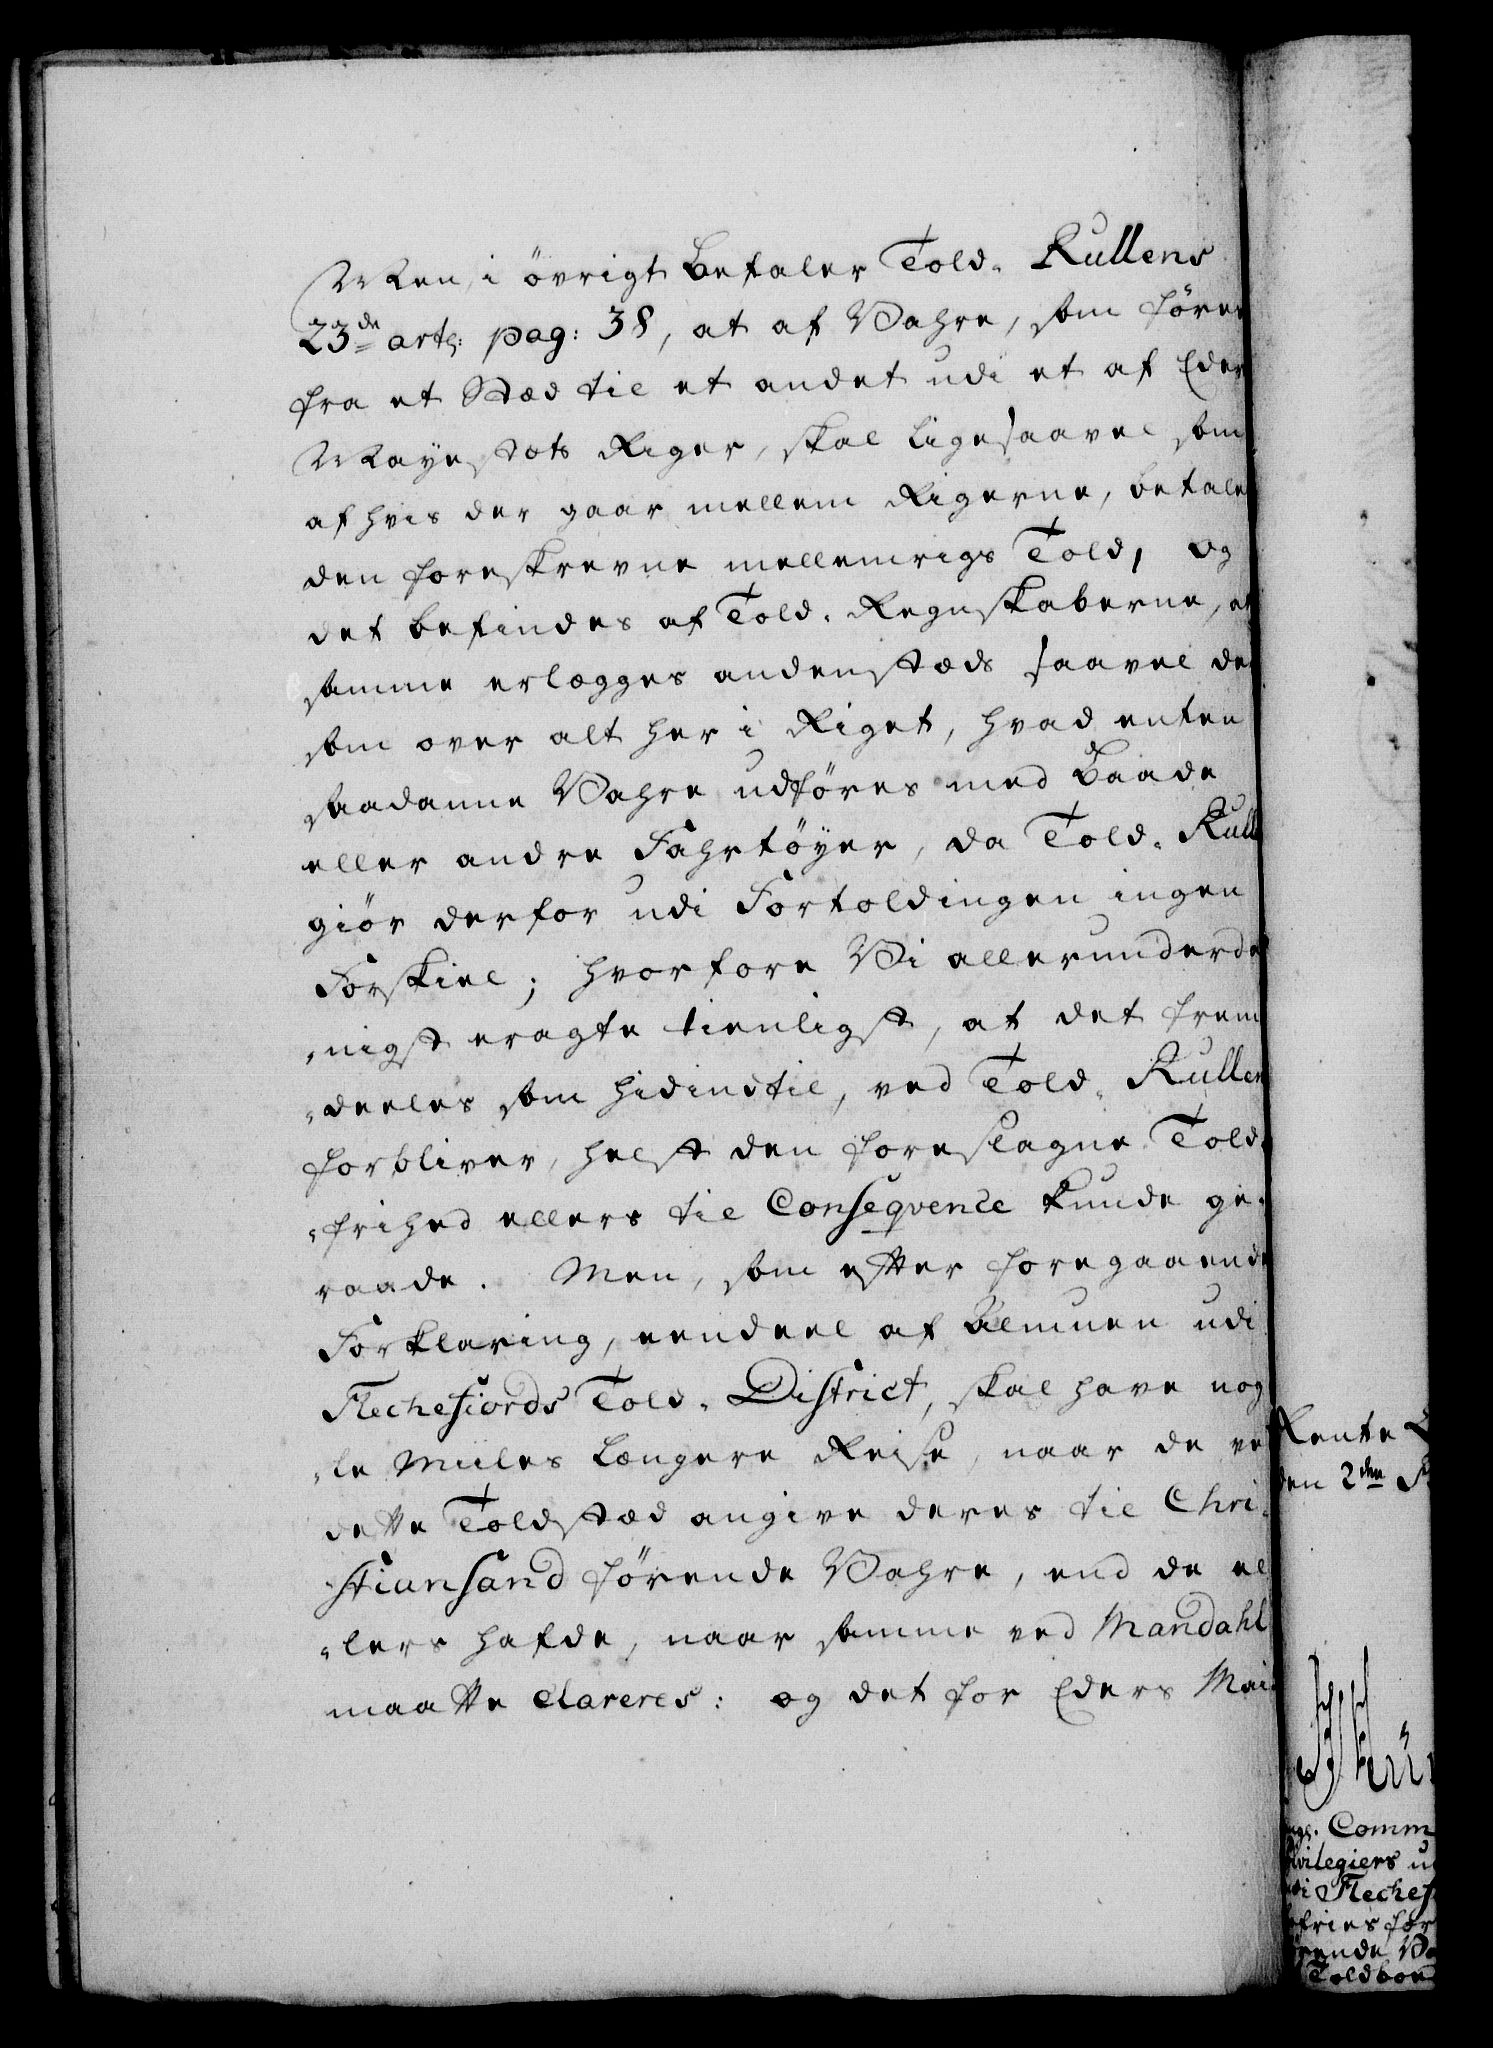 Men, i övrigt befaler Told-Rullens
23de artl: pag: 38, at af Vahre, som förer
fra et Stæd til et andet udi et af Eders
Mayestæts Riger, skal ligesaavel som
af hvis der gaar mellem Rigerne, betales
den foreskrevne mellemrigs Told, og
det befindes af Told-Regnskaberne, at
samme erlægges andenstæds saavel der
som over alt her i Riget, hvad enten
saadanne Vahre udföres med Baade
eller andre Fahrtöyer, da Told-Rull
giör derfor udi Fortoldingen ingen
Forskiel; hvorfore Vi allerunderda
nigst eragte tienligst, at det frem
deeles som hidindtil, ved Told-Rullen
forbliver, helst den foreslagne Told-
frihed ellers til Conseqvence kunde ge-
raade. Men, som efter foregaaende
Forklaring, eendeel af Almuen udi
Flechefiords Told-District, skal have nog
le Miiles længere Reise, naar de ved
dette Toldstæd angive deres til Chri-
stiansand förende Vahre, end de el
lers hafde, naar samme ved Mandahl
maatte clareres: og det for Eders Mai
Rente
den 2den
Comm
vilegiers u
Flechef
efries for
rende Va
Toldbod